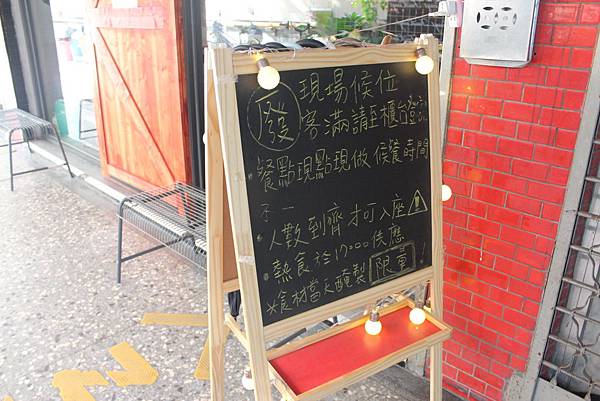 發
現場候位
客滿請至櫃台登記
·餐點現點現做 候餐時間
不一
·人數到齊才可入座!
·熱食於17:00供應!
※食材當天醃製 限量